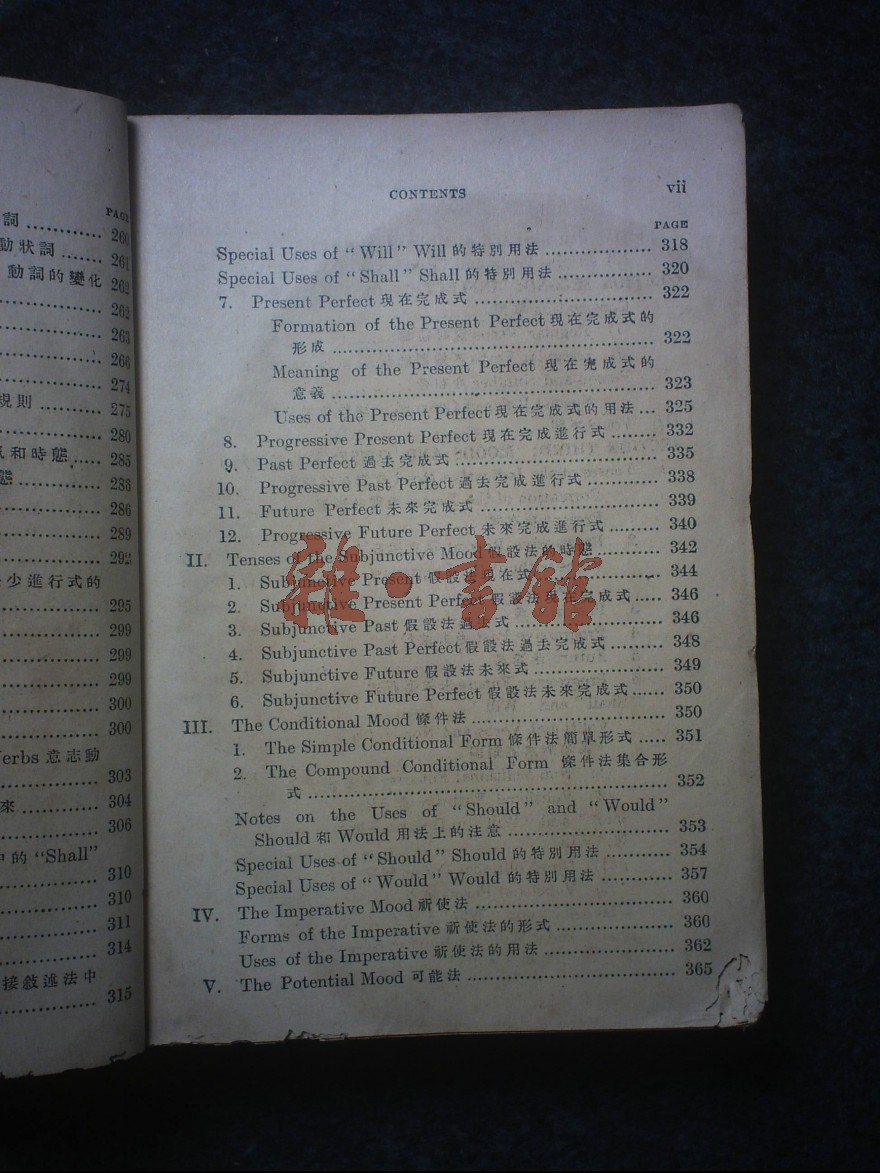 PAGE
詞 ............ 260
動狀詞 ........ 261
動詞的變化 262
262
263
266
274
規則 ......... 275
280
和時態 ..... 285
態 ............ 286
289
292
少進行式的
295
299
299
299
300
300
Verbs 意志動
303
來 ......... 304
306
中的 “Shall”
310
310
311
314
接敘述法中
315
CONTENTS vii
PAGE
Special Uses of “Will” Will 的特別用法 .................. 318
Special Uses of “Shall” Shall 的特別用法 ............... 320
7. Present Perfect 現在完成式 .............................. 322
Formation of the Present Perfect 現在完成式的
形成 ...................................................... 322
Meaning of the Present Perfect 現在完成式的
意義 ...................................................... 323
Uses of the Present Perfect 現在完成式的用法 ... 325
8. Progressive Present Perfect 現在完成進行式 ........ 332
9. Past Perfect 過去完成式 ................................. 335
10. Progressive Past Perfect 過去完成進行式 ............ 338
11. Future Perfect 未來完成式 .............................. 339
12. Progressive Future Perfect 未來完成進行式 ......... 340
II. Tenses of the Subjunctive Mood 假設法的時態 ........... 342
1. Subjunctive Present 假設法現在式 .................... 344
2. Subjunctive Present Perfect 假設法現在完成式 ..... 346
3. Subjunctive Past 假設法過去式 ........................ 346
4. Subjunctive Past Perfect 假設法過去完成式 ......... 348
5. Subjunctive Future 假設法未來式 ..................... 349
6. Subjunctive Future Perfect 假設法未來完成式 ...... 350
III. The Conditional Mood 條件法 ................................. 350
1. The Simple Conditional Form 條件法簡單形式 ..... 351
2. The Compound Conditional Form 條件法集合形
式 ......................................................... 352
Notes on the Uses of “Should” and “Would”
Should 和 Would 用法上的注意 ........................ 353
Special Uses of “Should” Should 的特別用法 ........... 354
Special Uses of “Would” Would 的特別用法 ............ 357
IV. The Imperative Mood 祈使法 ................................. 360
Forms of the Imperative 祈使法的形式 .................... 360
Uses of the Imperative 祈使法的用法 ...................... 362
V. The Potential Mood 可能法 .................................... 365
雅·書館